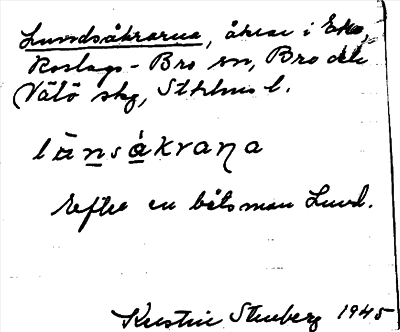 Lundsåkrarna, åkrar i Eka,
Roslags-Bro sn, Bro och
Vätö skg, Sthlms l.
länsåkrana
Efter en båtsman Lund.
Kerstin Stenberg 1945